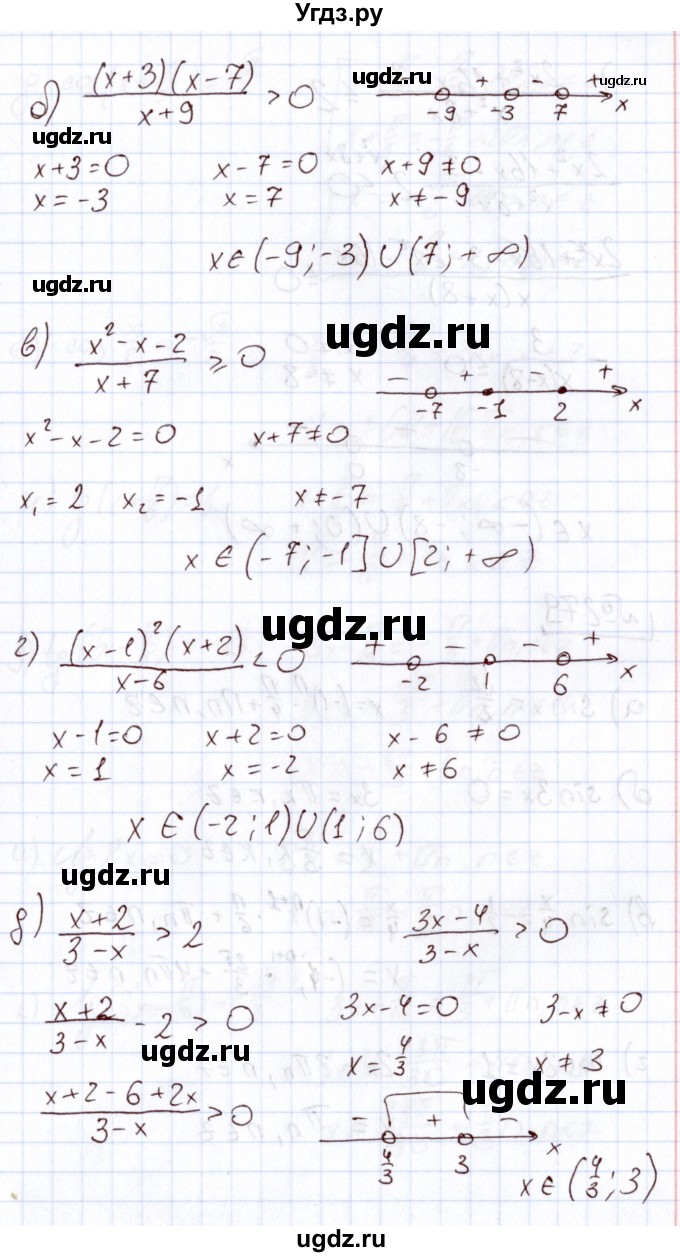 Угдз.ру
б) (x+3)(x-7)/(x+9) > 0
ugdz.ru
ugdz.ru
+ - +
-9 -3 7 x
x+3=0 x-7=0 x+9≠0
x=-3 x=7 x≠-9
x∈(-9;-3)∪(7;+∞)
ugdz.ru
ugdz.ru
в) (x²-x-2)/(x+7) ≥ 0
- + - +
-7 -1 2 x
x²-x-2=0 x+7≠0
x₁=2 x₂=-1 x≠-7
x∈(-7;-1]∪[2;+∞)
ugdz.ru
г) (x-1)²(x+2)/(x-6) < 0
+ - - +
-2 1 6 x
x-1=0 x+2=0 x-6≠0
x=1 x=-2 x≠6
x∈(-2;1)∪(1;6)
ugdz.ru
д) (x+2)/(3-x) > 2 (3x-4)/(3-x) > 0
(x+2)/(3-x) - 2 > 0 3x-4=0 3-x≠0
ugdz.ru
x=4/3 x≠3
ugdz.ru
(x+2-6+2x)/(3-x) > 0
- + -
4/3 3 x
x∈(4/3;3)
ugdz.ru